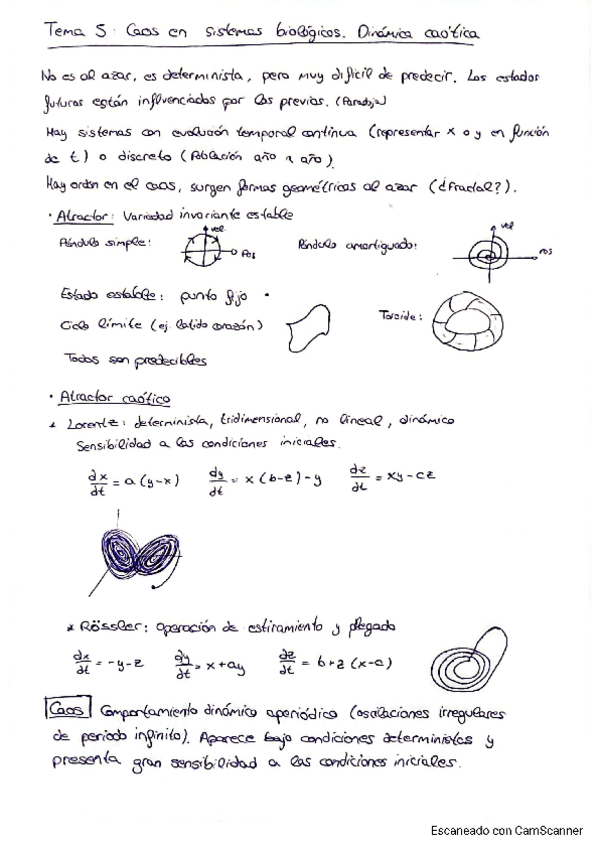 Tema 5: Caos en sistemas biológicos. Dinámica caótica
No es al azar, es determinista, pero muy difícil de predecir. Los estados
futuros están influenciados por los previos. (Paradoja)
Hay sistemas con evolución temporal continua (representar x o y en función
de t) o discreto (Población año a año).
Hay orden en el caos, surgen formas geométricas al azar (¿Fractal?).
· Atractor: Variedad invariante estable
Péndulo simple: vel Pos Péndulo amortiguado: vel Pos
Estado estable: punto fijo ·
Ciclo límite (ej. latido corazón) Toroide:
Todos son predecibles
· Atractor caótico
* Lorentz: determinista, tridimensional, no lineal, dinámico
Sensibilidad a las condiciones iniciales.
dx/dt = a(y-x) dy/dt = x(b-z)-y dz/dt = xy-cz
* Rössler: operación de estiramiento y plegado
dx/dt = -y-z dy/dt = x+ay dz/dt = b+z(x-c)
Caos Comportamiento dinámico aperiódico (oscilaciones irregulares
de periodo infinito). Aparece bajo condiciones deterministas y
presenta gran sensibilidad a las condiciones iniciales.
Escaneado con CamScanner